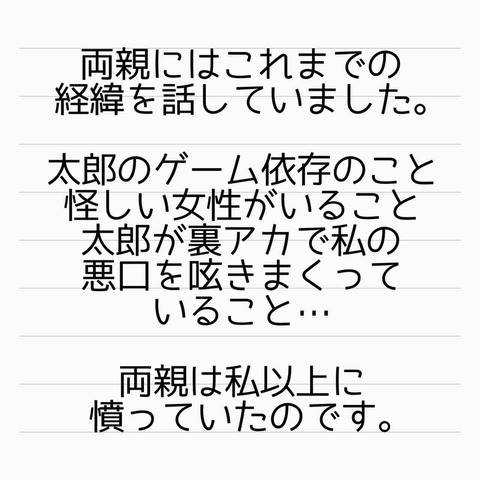 両親にはこれまでの
経緯を話していました。
太郎のゲーム依存のこと
怪しい女性がいること
太郎が裏アカで私の
悪口を呟きまくって
いること…
両親は私以上に
憤っていたのです。